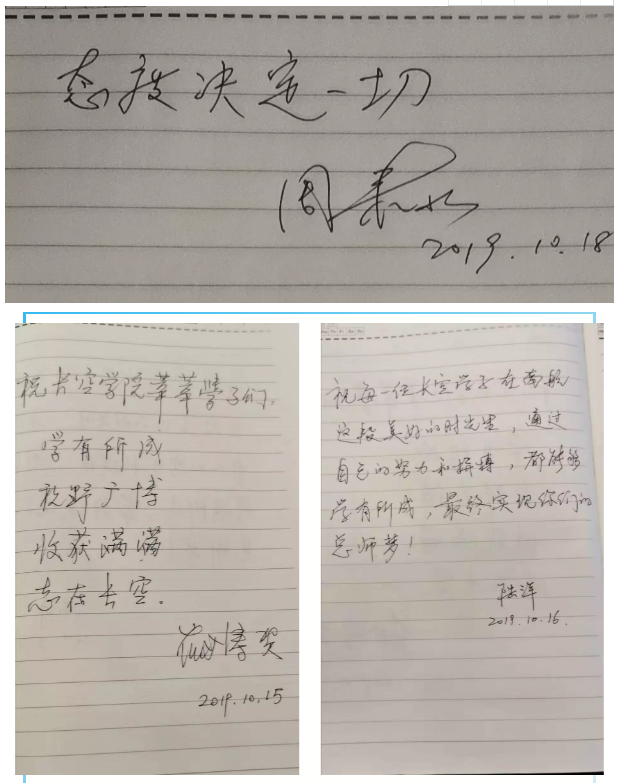 态度决定一切
周
2019.10.18
祝长空学院莘莘学子们,
学有所成
视野广博
收获满满
志在长空.
博
2019.10.15
祝每一位长空学子在南航
这段美好的时光里,通过
自己的努力和拼搏,都能够
学有所成,最终实现你们的
总师梦!
陆洋
2019.10.16.